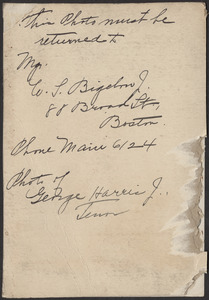 This Photo must be
returned to
Mgr.
W. S. Bigelow Jr.
88 Broad St.,
Boston.
Phone Main 6124
Photo of
George Harris Jr.,
Tenor